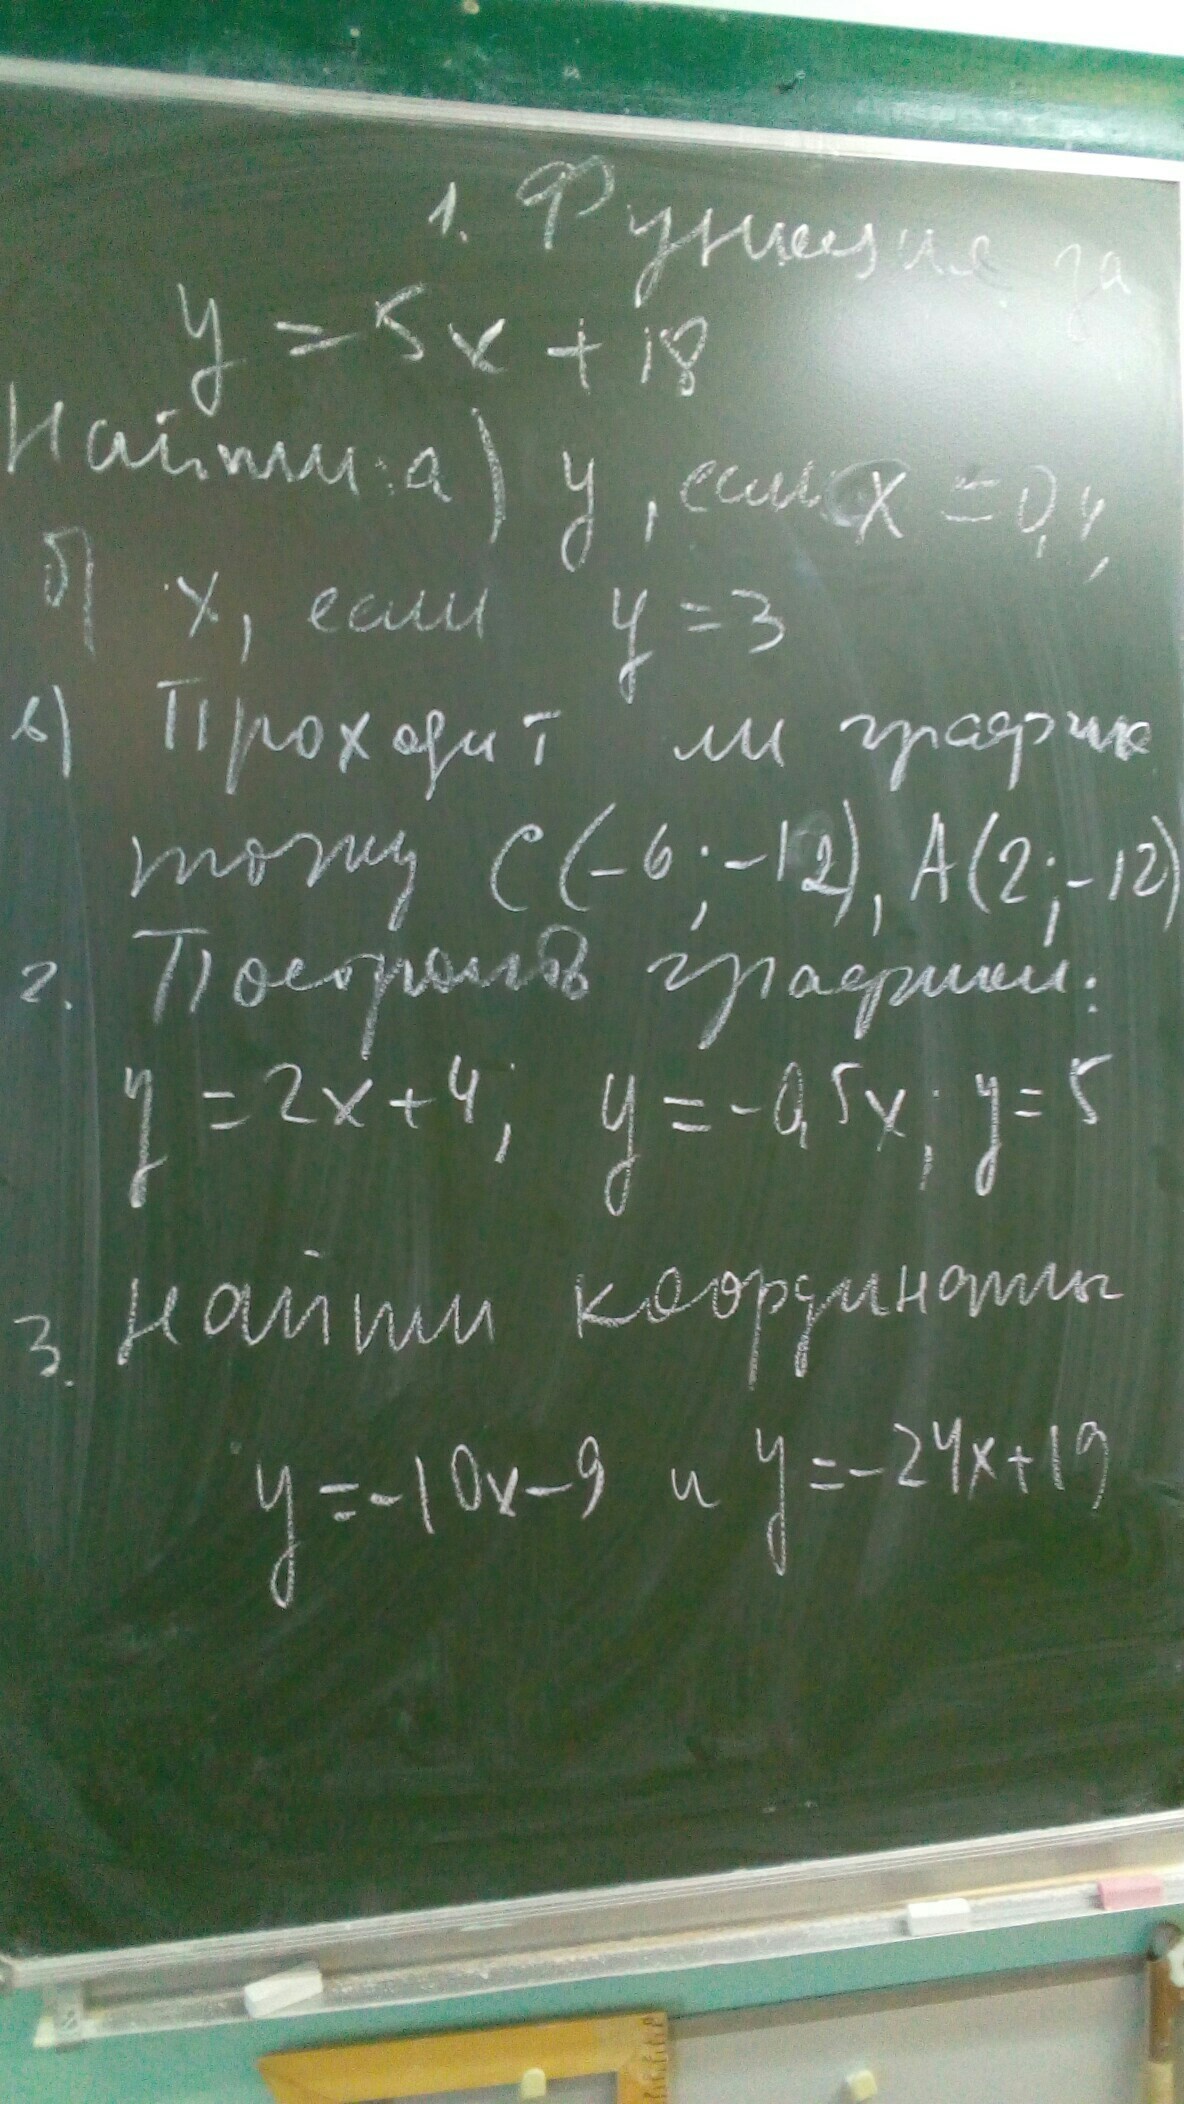 1. Функция за
y = 5x + 18
Найти: а) y, если x = 0,4,
б) x, если y = 3
в) Проходит ли график
точку C(-6; -12), A(2; -12)
2. Построить графики:
y = 2x + 4; y = -0,5x; y = 5
3. Найти координаты
y = -10x - 9 и y = -24x + 19